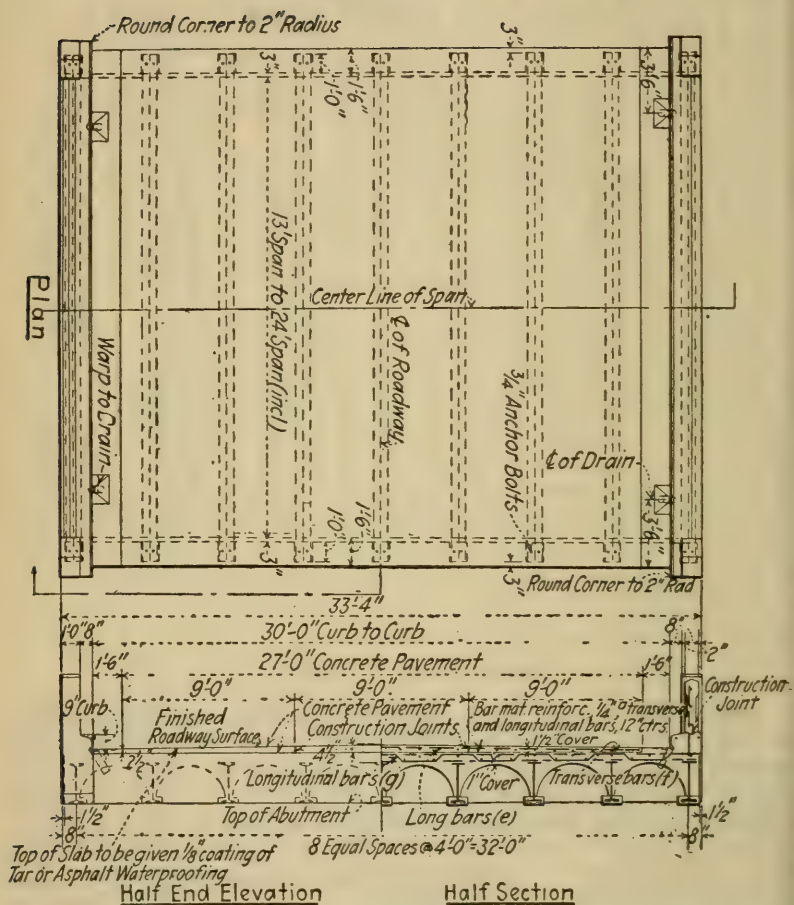 Round Corner to 2" Radius
3"
3"
1'-6"
1'-0"
3'-6"
13' Span to 24' Span (incl)
Center Line of Span
℄ of Roadway
Plan
Warp to Drain
3/4" Anchor Bolts
℄ of Drain
1'-6"
1'-0"
3"
3'-6"
3"
Round Corner to 2" Rad
33'-4"
1'-0" 8"
30'-0" Curb to Curb
8"
2"
27'-0" Concrete Pavement
1'-6"
1'-6"
9'-0"
9'-0"
9'-0"
Construction
Joint
9" Curb
Finished
Roadway Surface
Concrete Pavement
Construction Joints
Bar mat reinforc. 1/4" transverse
and longitudinal bars, 12" ctrs.
1 1/2" Cover
2 1/2"
4 1/2"
Longitudinal bars (g)
1" Cover
Transverse bars (f)
Top of Abutment
Long bars (e)
1 1/2"
1 1/2"
8"
8"
8 Equal Spaces @ 4'-0" = 32'-0"
Top of Slab to be given 1/8" coating of
Tar or Asphalt Waterproofing
Half End Elevation
Half Section